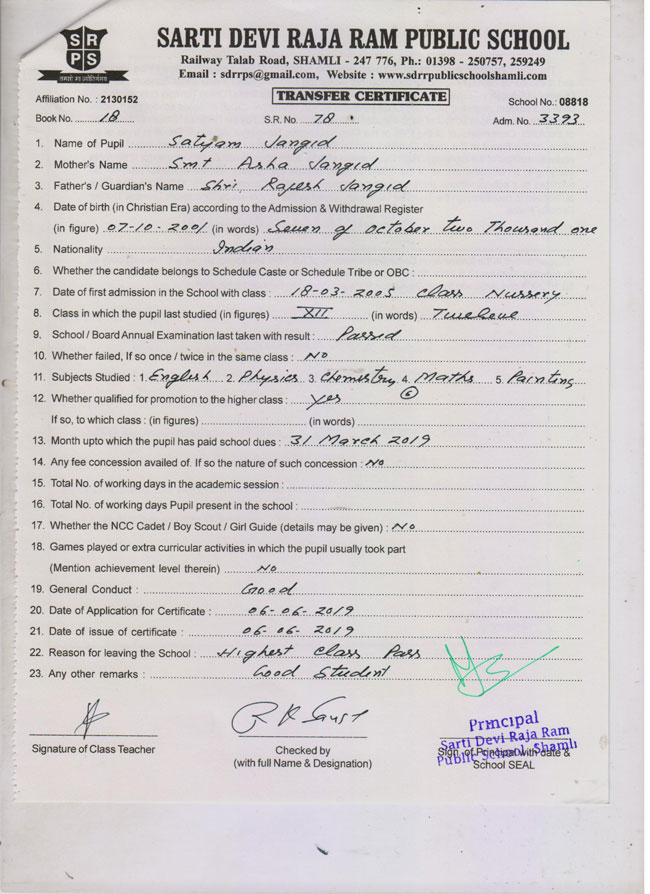 S R
P S
तमसो मा ज्योतिर्गमय
SARTI DEVI RAJA RAM PUBLIC SCHOOL
Railway Talab Road, SHAMLI - 247 776, Ph.: 01398 - 250757, 259249
Email : sdrrps@gmail.com, Website : www.sdrrpublicschoolshamli.com
Affiliation No. : 2130152 TRANSFER CERTIFICATE School No.: 08818
Book No. 18 S.R. No. 78 Adm. No. 3393
1. Name of Pupil Satyam Jangid
2. Mother's Name Smt Asha Jangid
3. Father's / Guardian's Name Shri Rajesh Jangid
4. Date of birth (in Christian Era) according to the Admission & Withdrawal Register
(in figure) 07-10-2001 (in words) Seven of October two Thousand one
5. Nationality Indian
6. Whether the candidate belongs to Schedule Caste or Schedule Tribe or OBC :
7. Date of first admission in the School with class : 18-03-2005 class Nursery
8. Class in which the pupil last studied (in figures) XII (in words) Twelve
9. School / Board Annual Examination last taken with result : Passed
10. Whether failed, If so once / twice in the same class : No
11. Subjects Studied : 1. English 2. Physics 3. Chemistry 4. Maths 5. Painting
12. Whether qualified for promotion to the higher class : Yes 6
If so, to which class : (in figures) (in words)
13. Month upto which the pupil has paid school dues : 31 March 2019
14. Any fee concession availed of. If so the nature of such concession : No
15. Total No. of working days in the academic session :
16. Total No. of working days Pupil present in the school :
17. Whether the NCC Cadet / Boy Scout / Girl Guide (details may be given) : No
18. Games played or extra curricular activities in which the pupil usually took part
(Mention achievement level therein) No
19. General Conduct : Good
20. Date of Application for Certificate : 06-06-2019
21. Date of issue of certificate : 06-06-2019
22. Reason for leaving the School : Highest Class Pass
23. Any other remarks : Good Student
Signature of Class Teacher
Checked by
(with full Name & Designation)
Principal
Sarti Devi Raja Ram
Public School, Shamli
Sign. of Principal with date &
School SEAL